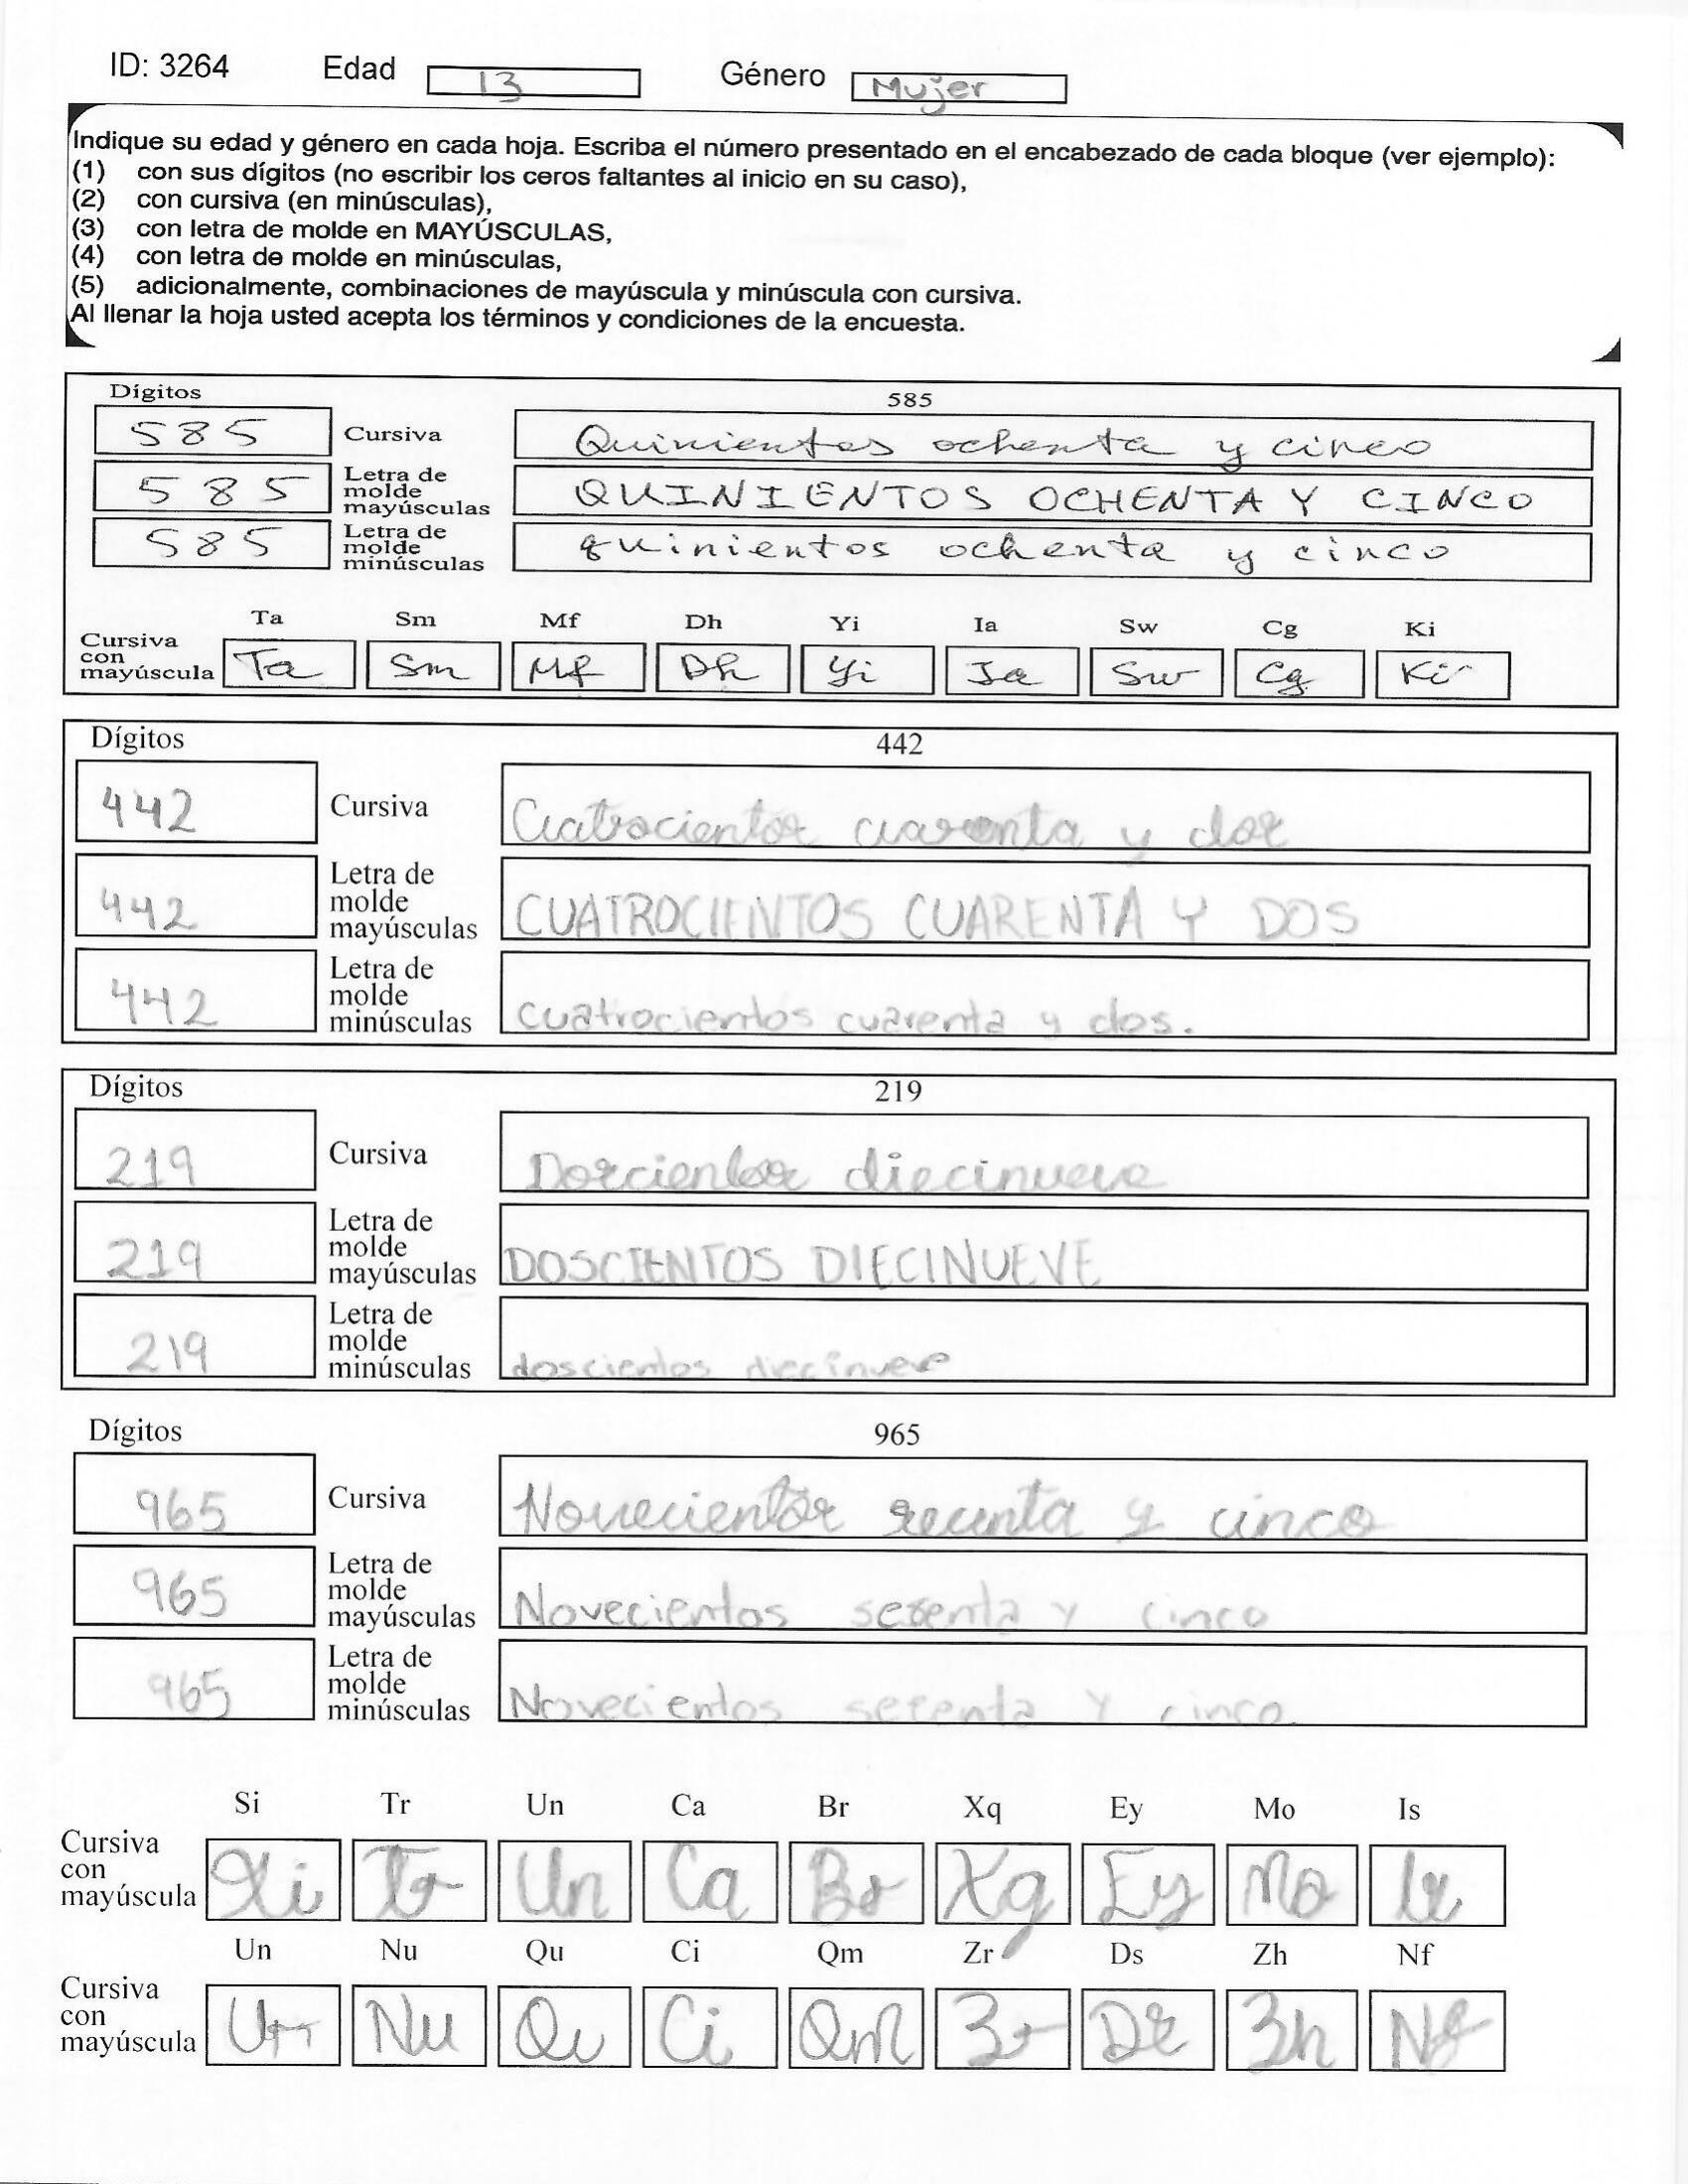 ID: 3264 Edad 13 Género Mujer
Indique su edad y género en cada hoja. Escriba el número presentado en el encabezado de cada bloque (ver ejemplo):
(1) con sus dígitos (no escribir los ceros faltantes al inicio en su caso),
(2) con cursiva (en minúsculas),
(3) con letra de molde en MAYÚSCULAS,
(4) con letra de molde en minúsculas,
(5) adicionalmente, combinaciones de mayúscula y minúscula con cursiva.
Al llenar la hoja usted acepta los términos y condiciones de la encuesta.
Dígitos 585
585 Cursiva Quinientos ochenta y cinco
585 Letra de molde mayúsculas QUINIENTOS OCHENTA Y CINCO
585 Letra de molde minúsculas quinientos ochenta y cinco
Ta Sm Mf Dh Yi Ia Sw Cg Ki
Cursiva con mayúscula Ta Sm Mf Dh Yi Ia Sw Cg Ki
Dígitos 442
442 Cursiva Cuatrocientos cuarenta y dos
442 Letra de molde mayúsculas CUATROCIENTOS CUARENTA Y DOS
442 Letra de molde minúsculas cuatrocientos cuarenta y dos.
Dígitos 219
219 Cursiva Doscientos diecinueve
219 Letra de molde mayúsculas DOSCIENTOS DIECINUEVE
219 Letra de molde minúsculas doscientos
Dígitos 965
965 Cursiva Novecientos y cinco
965 Letra de molde mayúsculas Novecientos sesenta y cinco
965 Letra de molde minúsculas Novecientos sesenta Y cinco
Si Tr Un Ca Br Xq Ey Mo Is
Cursiva con mayúscula Si Tr Un Ca Br Xq Ey Mo Is
Un Nu Qu Ci Qm Zr Ds Zh Nf
Cursiva con mayúscula Un Nu Qu Ci Qm Zr Ds Zh Nf